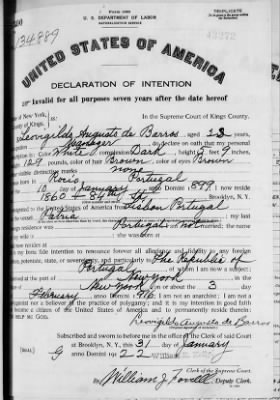 TRIPLICATE
U. S. DEPARTMENT OF LABOR
NATURALIZATION SERVICE
134889
43272
UNITED STATES OF AMERICA
DECLARATION OF INTENTION
Invalid for all purposes seven years after the date hereof
of New York, In the Supreme Court of Kings County.
of Kings
Leovigildo Augusto de Barros, aged 23 years,
Manager do declare on oath that my personal
Color White, complexion Dark, height 5 feet 9 inches,
129 pounds, color of hair Brown, color of eyes Brown
visible distinctive marks none
Portugal
10 day of January, anno Domini 1899; I now reside
1860 - 84th St, Brooklyn, N. Y.
United States of America from Lisbon Portugal
Patria
residence was Portugal not married; the name
was
I now reside at
bona fide intention to renounce forever all allegiance and fidelity to any foreign
potentate, state, or sovereignty, and particularly to The Republic of
Portugal, of whom I am now a subject;
arrived at the port of New York
New York on or about the 3 day
February, anno Domini 1916; I am not an anarchist; I am not a
polygamist nor a believer in the practice of polygamy; and it is my intention in good faith
to become a citizen of the United States of America and to permanently reside therein:
HELP ME GOD.
Leovigildo Augusto de Barros
Subscribed and sworn to before me in the office of the Clerk of said Court
at Brooklyn, N. Y., this 31 day of January
[SEAL] anno Domini 1922
Clerk of the Supreme Court.
By William J. Powell, Deputy Clerk.